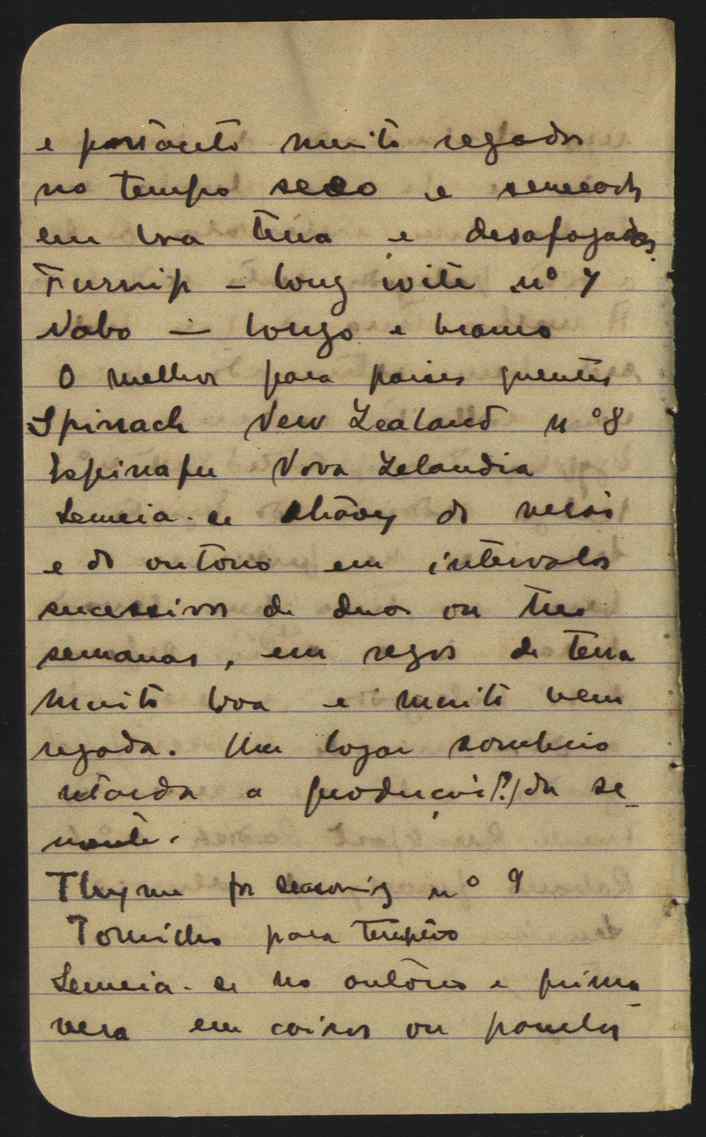 e portanto muito regados
no tempo seco e semeados
em boa terra e desafogados.
Turnip – long wite nº 7
Nabo – longo e branco
O melhor para paises quentes
Spinach New Zealand nº 8
Espinafre Nova Zelandia
Semeia-se atravez do verão
e do outono em intervalos
sucessivos de duas ou tres
semanas, em regos de terra
muito boa e muito bem
regada. Um logar sombrio
retarda a producção(?) da se-
mente.
Thyme for seasoning nº 9
Tomilho para tempêro
Semeia-se no outôno e prima-
vera em caixas ou panelas